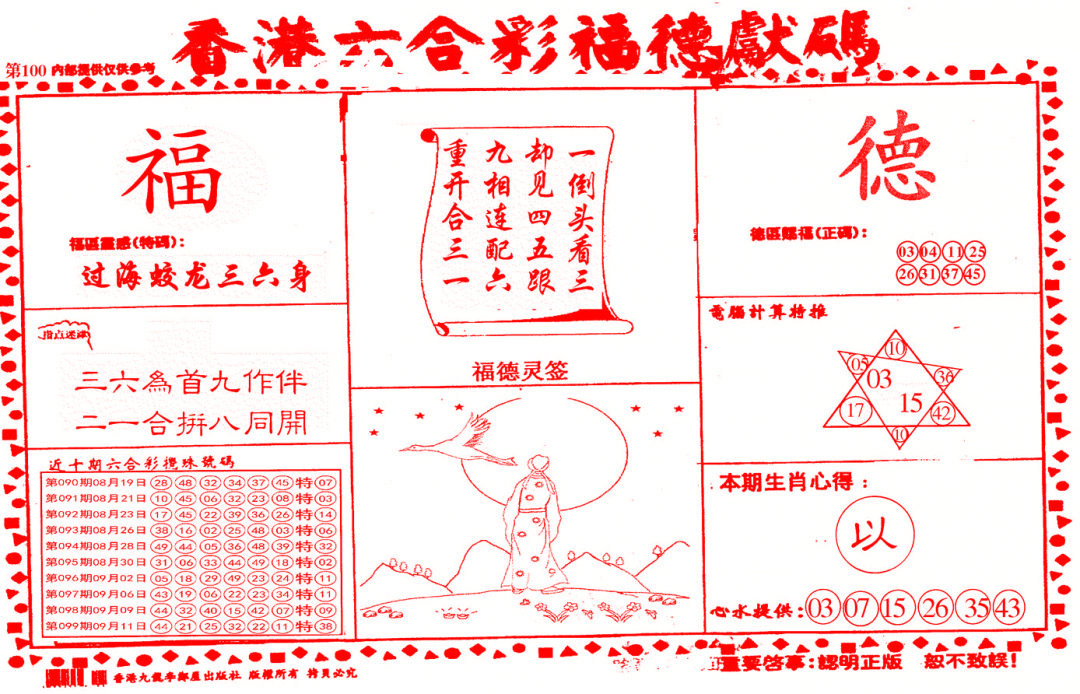 香港六合彩福德獻碼
第100 内部提供仅供参考
福
福區靈感(特碼):
过海蛟龙三六身
指点迷津
三六為首九作伴
二一合拼八同開
近十期六合彩攪珠號碼
第090期08月19日 28 48 32 34 37 45 特 07
第091期08月21日 10 45 06 32 23 08 特 03
第092期08月23日 17 45 22 39 36 26 特 14
第093期08月26日 38 16 02 25 48 03 特 06
第094期08月28日 49 44 05 36 48 39 特 32
第095期08月30日 31 06 33 44 49 18 特 02
第096期09月02日 05 18 29 49 23 24 特 11
第097期09月06日 43 19 06 22 23 34 特 11
第098期09月09日 44 32 40 15 42 07 特 09
第099期09月11日 44 21 25 32 22 11 特 38
一倒头看三
却见四五跟
九相连配六
重开合三一
福德灵签
德
德區賜福(正碼):
03 04 11 25
26 31 37 45
電腦計算特推
10
05 03 36
17 15 42
10
本期生肖心得:
以
心水提供: 03 07 15 26 35 43
重要啓事:認明正版 恕不致誤!
版權所有 拷貝必究